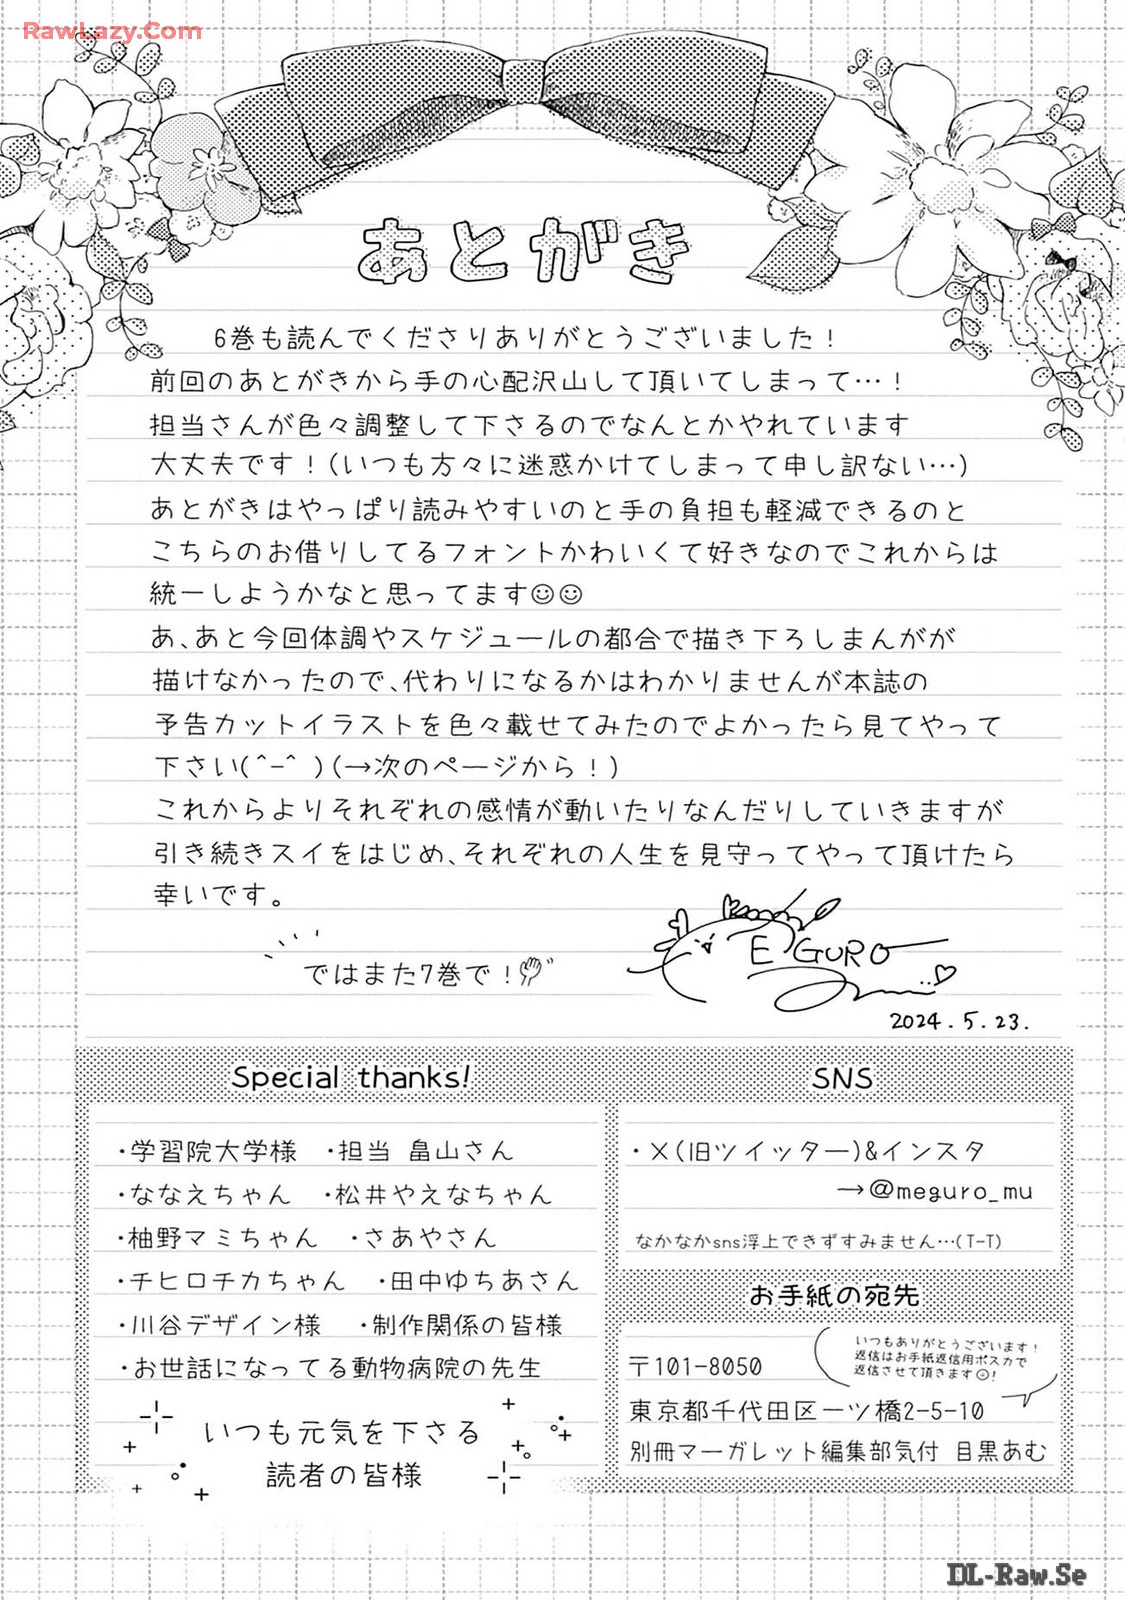 RawLazy.Com
あとがき
6巻も読んでくださりありがとうございました！
前回のあとがきから手の心配沢山して頂いてしまって…！
担当さんが色々調整して下さるのでなんとかやれています
大丈夫です！(いつも方々に迷惑かけてしまって申し訳ない…)
あとがきはやっぱり読みやすいのと手の負担も軽減できるのと
こちらのお借りしてるフォントかわいくて好きなのでこれからは
統一しようかなと思ってます☺☺
あ、あと今回体調やスケジュールの都合で描き下ろしまんがが
描けなかったので、代わりになるかはわかりませんが本誌の
予告カットイラストを色々載せてみたのでよかったら見てやって
下さい(^-^ )(→次のページから！)
これからよりそれぞれの感情が動いたりなんだりしていきますが
引き続きスイをはじめ、それぞれの人生を見守ってやって頂けたら
幸いです。
ではまた7巻で！
EGURO
2024.5.23.
Special thanks!
・学習院大学様 ・担当 畠山さん
・ななえちゃん ・松井やえなちゃん
・柚野マミちゃん ・さあやさん
・チヒロチカちゃん ・田中ゆちあさん
・川谷デザイン様 ・制作関係の皆様
・お世話になってる動物病院の先生
いつも元気を下さる
読者の皆様
SNS
・X(旧ツイッター)&インスタ
→@meguro_mu
なかなかsns浮上できずすみません…(T-T)
お手紙の宛先
いつもありがとうございます！
返信はお手紙返信用ポスカで
返信させて頂きます☺!
〒101-8050
東京都千代田区一ツ橋2-5-10
別冊マーガレット編集部気付 目黒あむ
DL-Raw.Se